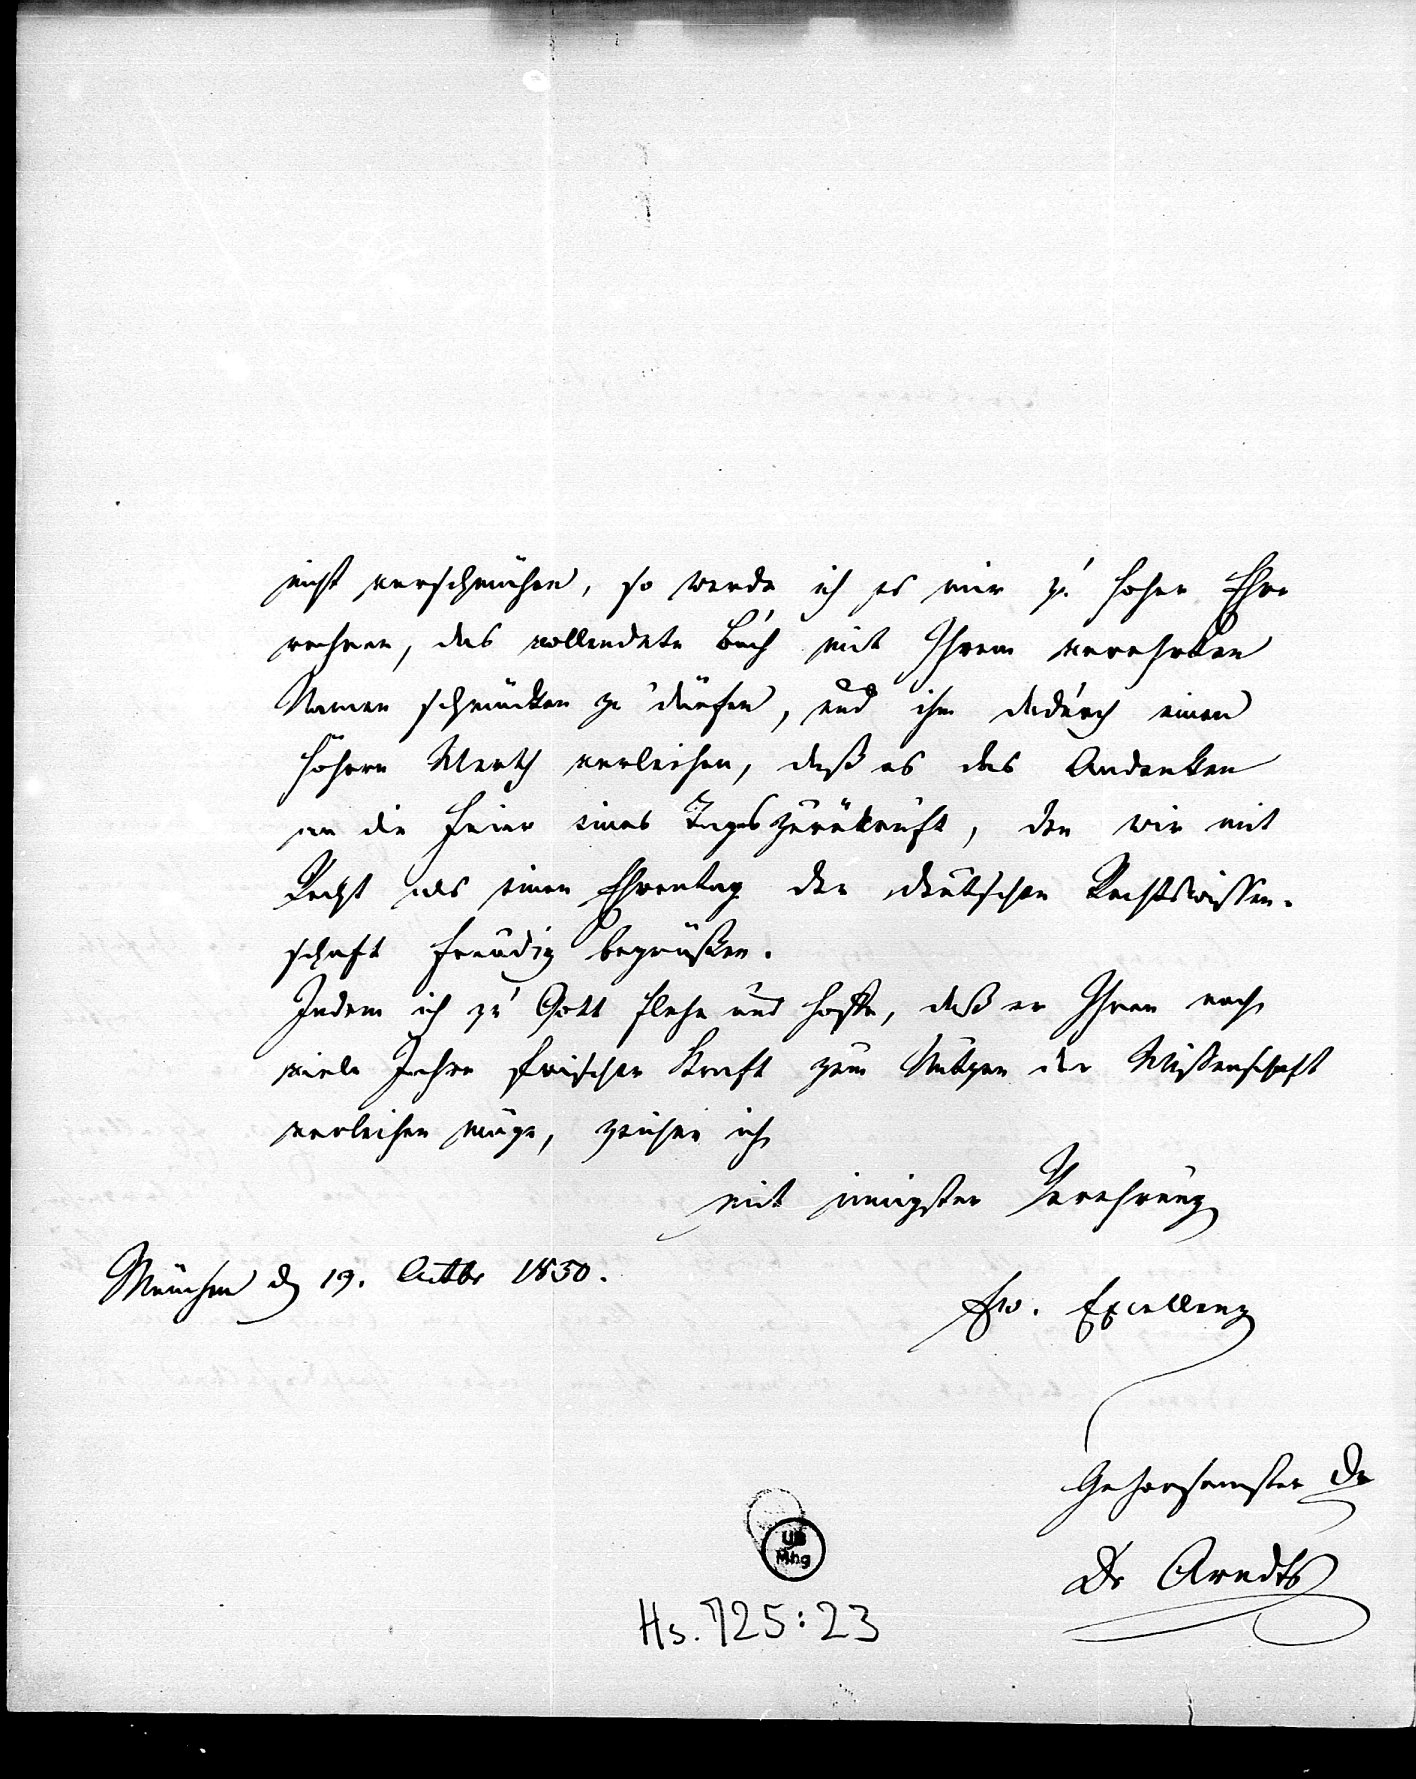 nicht verschmähen, so werde ich es mir zu hoher Ehre
rechnen, das vollendete Buch mit Ihrem verehrten
Namen schmücken zu dürfen, und ihm dadurch einen
höhern Werth verleihen, daß es das Andenken
an die Feier eines Tages zurükruft, den wir mit
Recht als einen Ehrentag der deutschen Rechtswissen-
schaft freudig begrüßen.
Indem ich zu Gott flehe und hoffe, daß er Ihnen noch
viele Jahre frischer Kraft zum Nutzen der Wissenschaft
verleihen möge, zeichne ich
mit innigster Verehrung
München d 19. Octbr 1850.
Ew. Excellenz
Gehorsamster Dr
Dr Arndts
UB
Mbg
Hs. 725:23